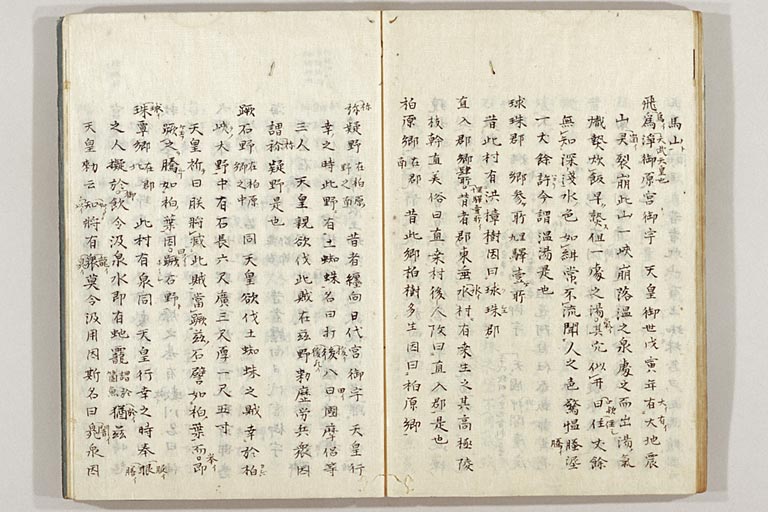 馬山
飛鳥淨御原宮御宇 天皇御世戊寅年有大地震
山罡裂崩此山一峽崩落温之泉處之而出湯氣
熾熱炊飯早熟但一處之湯其穴似井口徑丈餘
無知深淺水色如紺常不流聞人之聲驚慍騰埿
一丈餘許今謂温湯是也
球珠郡 郷參所 驛壹所
昔此村有洪樟樹因曰球珠郡
直入郡 郷肆所 驛壹所 昔者郡東垂水村有桑生之其高極陵
枝幹直美俗曰直桒村後人改曰直入郡是也
柏原郷 在郡南 昔此郷柏樹多生因曰柏原郷
祢疑野 在柏原野之南 昔者纏向日代宮御宇 天皇行
幸之時此野有土蜘蛛名曰打後八田國摩侶等
三人 天皇親欲伐此賊在茲野勅歷勞兵衆因
謂祢疑野是也
蹶石野 在柏原郷之中 同天皇欲伐土蜘蛛之賊幸於柏
峽大野中有石長六尺廣三尺厚一尺五寸
天皇祈曰朕將滅此賊當蹶茲石譬如柏葉而即
蹶之騰如柏葉因曰蹶石野
球覃郷 在郡北 此村有泉同 天皇行幸之時奉
之人擬於飲令汲泉水即有虵龗 謂於箇美 茲
天皇勅云 將有臰莫令汲用因斯名曰臰泉因